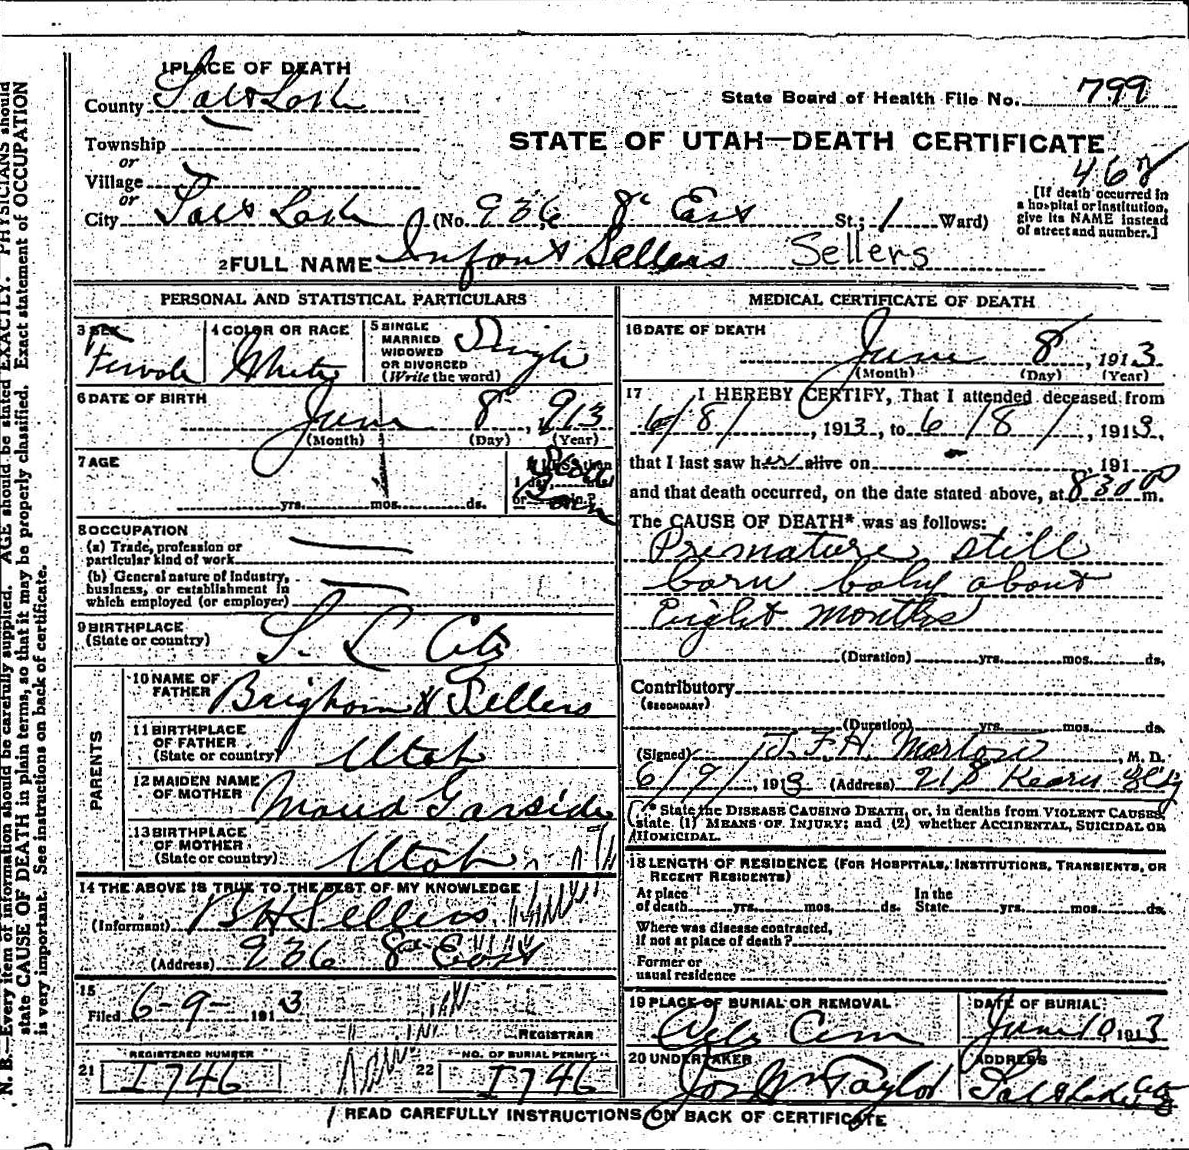 1 PLACE OF DEATH
County Salt Lake
State Board of Health File No. 799
STATE OF UTAH—DEATH CERTIFICATE
Township
or
Village
or
City Salt Lake (No. 936 8" East St.; 1 Ward)
468
[If death occurred in
a hospital or institution,
give its NAME instead
of street and number.]
2 FULL NAME Infant Sellers Sellers
PERSONAL AND STATISTICAL PARTICULARS
3 SEX
Female
4 COLOR OR RACE
White
5 SINGLE
MARRIED
WIDOWED
OR DIVORCED
(Write the word)
Single
6 DATE OF BIRTH
June 8, 1913
(Month) (Day) (Year)
7 AGE
yrs. mos. ds.
8 OCCUPATION
(a) Trade, profession or
particular kind of work
(b) General nature of industry,
business, or establishment in
which employed (or employer)
9 BIRTHPLACE
(State or country)
S. L. City
PARENTS
10 NAME OF
FATHER
Brigham H Sellers
11 BIRTHPLACE
OF FATHER
(State or country)
Utah
12 MAIDEN NAME
OF MOTHER
Maud Garside
13 BIRTHPLACE
OF MOTHER
(State or country)
Utah
14 THE ABOVE IS TRUE TO THE BEST OF MY KNOWLEDGE
(Informant) B H Sellers
(Address) 936 8" East
15
Filed 6-9- 1913
REGISTRAR
21 REGISTERED NUMBER
I746
22 NO. OF BURIAL PERMIT
I746
MEDICAL CERTIFICATE OF DEATH
16 DATE OF DEATH
June 8, 1913
(Month) (Day) (Year)
17 I HEREBY CERTIFY, That I attended deceased from
6/8/, 1913, to 6/8/, 1913,
that I last saw her alive on - , 191
and that death occurred, on the date stated above, at 8 30 P m.
The CAUSE OF DEATH* was as follows:
Premature still
born baby about
Eight months
(Duration) yrs. mos. ds.
Contributory
(SECONDARY)
(Duration) yrs. mos. ds.
(Signed) , M. D.
6/9/, 1913 (Address) 218 Kearn Bldg
* State the DISEASE CAUSING DEATH, or, in deaths from VIOLENT CAUSES,
state (1) MEANS OF INJURY; and (2) whether ACCIDENTAL, SUICIDAL OR
HOMICIDAL.
18 LENGTH OF RESIDENCE (FOR HOSPITALS, INSTITUTIONS, TRANSIENTS, OR
RECENT RESIDENTS)
At place
of death yrs. mos. ds.
In the
State yrs. mos. ds.
Where was disease contracted,
if not at place of death?
Former or
usual residence
19 PLACE OF BURIAL OR REMOVAL
City Cem
DATE OF BURIAL
June 10, 1913
20 UNDERTAKER
Jos Wm Taylor
ADDRESS
Salt Lake City
READ CAREFULLY INSTRUCTIONS ON BACK OF CERTIFICATE
N. B.—Every item of information should be carefully supplied. AGE should be stated EXACTLY. PHYSICIANS should
state CAUSE OF DEATH in plain terms, so that it may be properly classified. Exact statement of OCCUPATION
is very important. See instructions on back of certificate.